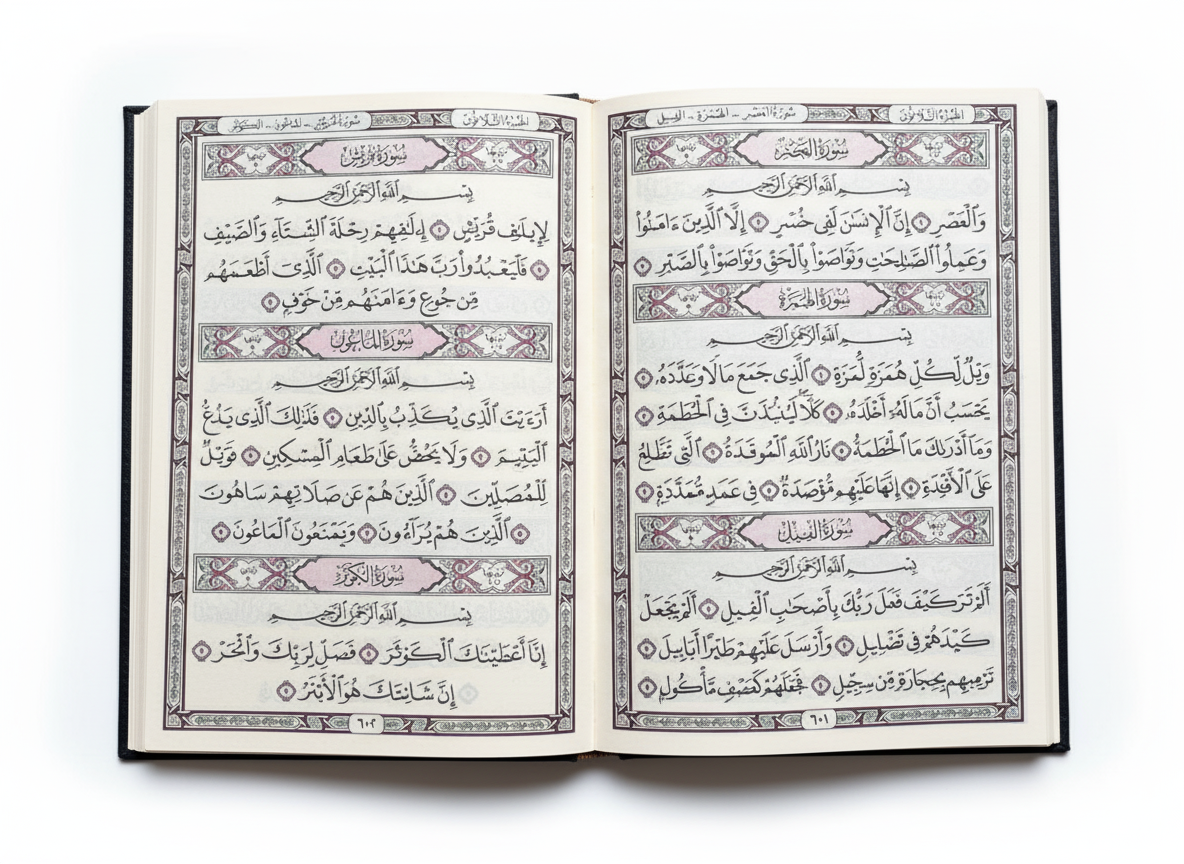 سورة العصر - الهمزة - الفيل الجزء الثلاثون
سورة العصر
بسم الله الرحمن الرحيم
وَالْعَصْرِ إِنَّ الْإِنسَٰنَ لَفِى خُسْرٍ إِلَّا الَّذِينَ ءَامَنُوا۟
وَعَمِلُوا۟ الصَّٰلِحَٰتِ وَتَوَاصَوْا۟ بِالْحَقِّ وَتَوَاصَوْا۟ بِالصَّبْرِ
سورة الهمزة
بسم الله الرحمن الرحيم
وَيْلٌ لِّكُلِّ هُمَزَةٍ لُّمَزَةٍ الَّذِى جَمَعَ مَالًا وَعَدَّدَهُۥ
يَحْسَبُ أَنَّ مَالَهُۥٓ أَخْلَدَهُۥ كَلَّا لَيُنۢبَذَنَّ فِى الْحُطَمَةِ
وَمَا أَدْرَىٰكَ مَا الْحُطَمَةُ نَارُ اللَّهِ الْمُوقَدَةُ الَّتِى تَطَّلِعُ
عَلَى الْأَفْـِٔدَةِ إِنَّهَا عَلَيْهِم مُّؤْصَدَةٌ فِى عَمَدٍ مُّمَدَّدَةٍ
سورة الفيل
بسم الله الرحمن الرحيم
أَلَمْ تَرَ كَيْفَ فَعَلَ رَبُّكَ بِأَصْحَٰبِ الْفِيلِ أَلَمْ يَجْعَلْ
كَيْدَهُمْ فِى تَضْلِيلٍ وَأَرْسَلَ عَلَيْهِمْ طَيْرًا أَبَابِيلَ
تَرْمِيهِم بِحِجَارَةٍ مِّن سِجِّيلٍ فَجَعَلَهُمْ كَعَصْفٍ مَّأْكُولٍ
٦٠١
سورة قريش
بسم الله الرحمن الرحيم
لِإِيلَٰفِ قُرَيْشٍ إِۦلَٰفِهِمْ رِحْلَةَ الشِّتَآءِ وَالصَّيْفِ
فَلْيَعْبُدُوا۟ رَبَّ هَٰذَا الْبَيْتِ الَّذِىٓ أَطْعَمَهُم
مِّن جُوعٍ وَءَامَنَهُم مِّنْ خَوْفٍ
سورة الماعون
بسم الله الرحمن الرحيم
أَرَءَيْتَ الَّذِى يُكَذِّبُ بِالدِّينِ فَذَٰلِكَ الَّذِى يَدُعُّ
الْيَتِيمَ وَلَا يَحُضُّ عَلَىٰ طَعَامِ الْمِسْكِينِ فَوَيْلٌ
لِّلْمُصَلِّينَ الَّذِينَ هُمْ عَن صَلَاتِهِمْ سَاهُونَ
الَّذِينَ هُمْ يُرَآءُونَ وَيَمْنَعُونَ الْمَاعُونَ
سورة الكوثر
بسم الله الرحمن الرحيم
إِنَّآ أَعْطَيْنَٰكَ الْكَوْثَرَ فَصَلِّ لِرَبِّكَ وَانْحَرْ
إِنَّ شَانِئَكَ هُوَ الْأَبْتَرُ